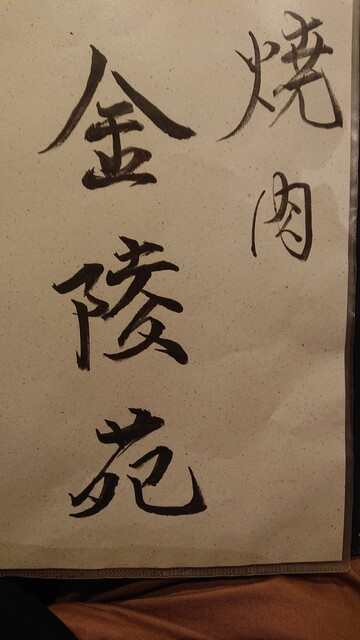 焼肉
金陵苑